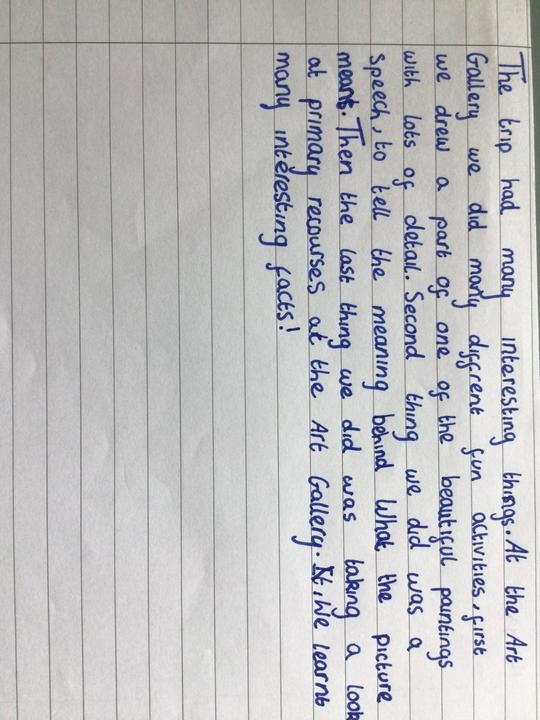 The trip had many interesting things. At the Art
Gallery we did many diffrent fun activities, first
we drew a part of one of the beautiful paintings
with lots of detail. Second thing we did was a
speech, to tell the meaning behind what the picture
meant. Then the last thing we did was taking a look
at primary recourses at the Art Gallery. It, We learnt
many interesting facts!